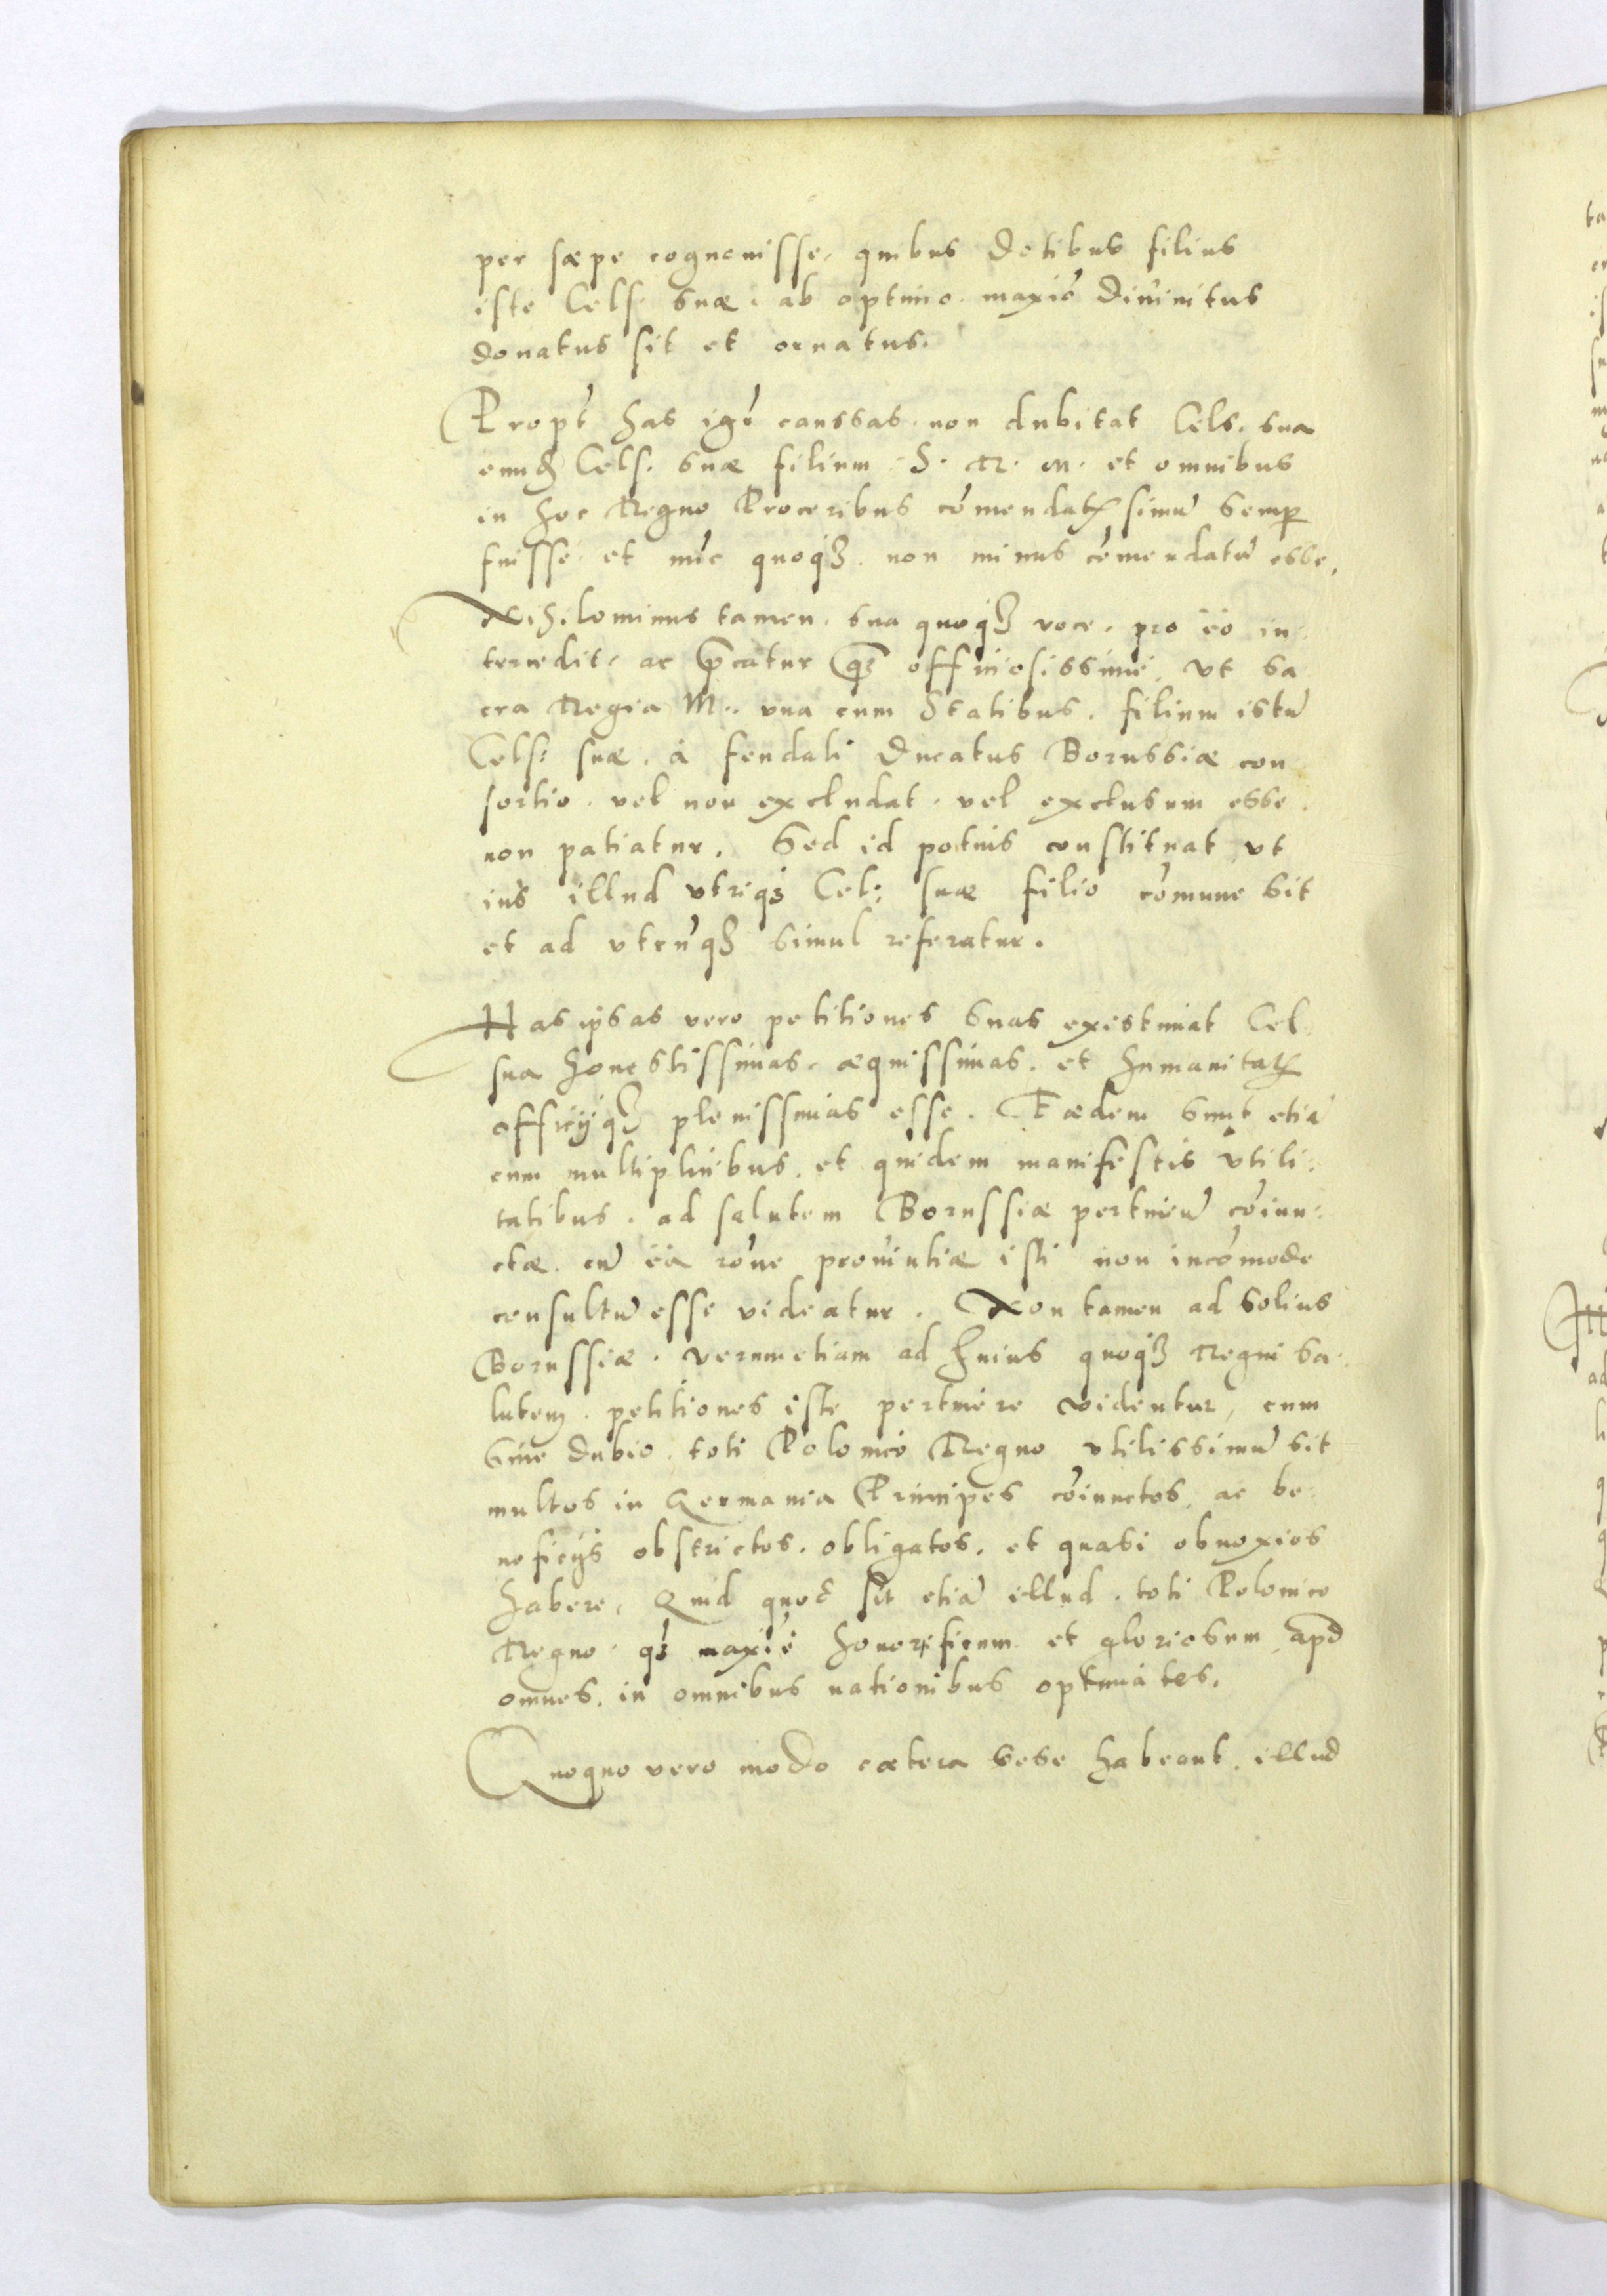 per sæpe cognouisse, quibus Dotibus filius
iste Cels. suæ. ab optimo. maxiō Diuinitus
donatus sit et ornatus.
Propt̄ has igr̄ caussas. non dubitat Cels. sua
eundē Cels. suæ filium S. R. M. et omnibus
in hoc Regno Proceribus cōmendatissimū semp
fuisse et nūc quoqȝ. non minus cōmendatū esse,
Nihilominus tamen, sua quoqȝ voce, pro eo in
tercedit, ac p̄catur qȝ officiosissimè, vt Sa
cra Regia M.. vna cum Statibus. filium istū
Cels: suæ. à feudali Ducatus Borussiæ con
sortio. vel non excludat. vel exclusum esse.
non patiatur. Sed id potius constituat vt
ius illud vtriqȝ Cel: suæ filio cōmune sit
et ad vtrūqȝ simul referatur.
Has ipsas vero petitiones suas existimat Cel.
sua honestissimas, æquissimas. et humanitatis
officijqȝ plenissimas esse. Eædem sunt etiā
cum multiplicibus. et quidem manifestis vtili:
tatibus. ad salutem Borussiæ pertinen̄ cōiun:
ctæ. cū ea rōne prouintiæ isti non incōmode
consultū esse videatur. Non tamen ad solius
Borussiæ. verumetiam ad huius quoqȝ Regni sa:
lutem. petitiones iste pertinere videntur, cum
sine dubio. toti Polonico Regno vtilissimū sit
multos in Germania Principes cōiunctos, ac be:
neficijs obstrictos. obligatos. et quasi obnoxios
habere, Quid quod sit etiā illud. toti Polonico
Regno. qȝ maxiē honorificum et gloriosum, apd
omnes. in omnibus nationibus optimates.
Quoquo vero modo cætera sese habeant. illud